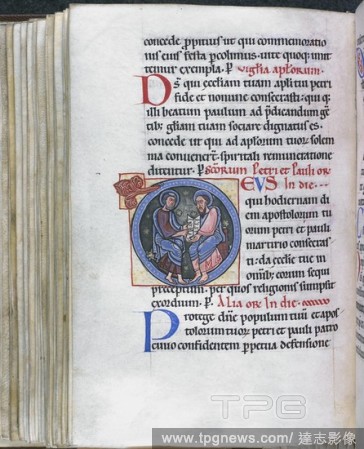 concede propitius ut qui commemoratio
nis eius festa percolimus. uite quoq; imit
temur exempla. P Vigilia aplorum.
Ds qui eccliam tuam apli tui petri
fide et nomine consecrasti: qui q;
illi beatum paulum ad pdicandum gen
tib; gliam tuam sociare dignatus es.
concede ut qui ad aplorum tuor solem
nia conuenert. spiritali remuneratione
ditentur. P Scorum Petri et Pauli or
EVS In die
qui hodiernam di
em apostolorum tu
orum petri et pauli
martirio consecras
ti: da ecclie tue in
omib; eorum sequi
preceptum. per quos religionis sumpsit
exordium. P. Alia or In die
Protege dne populum tuu et apos
tolorum tuor petri et pauli patro
cinio confidentem perpetua defensione
TPG
www.tpgnews.com/ 達志影像